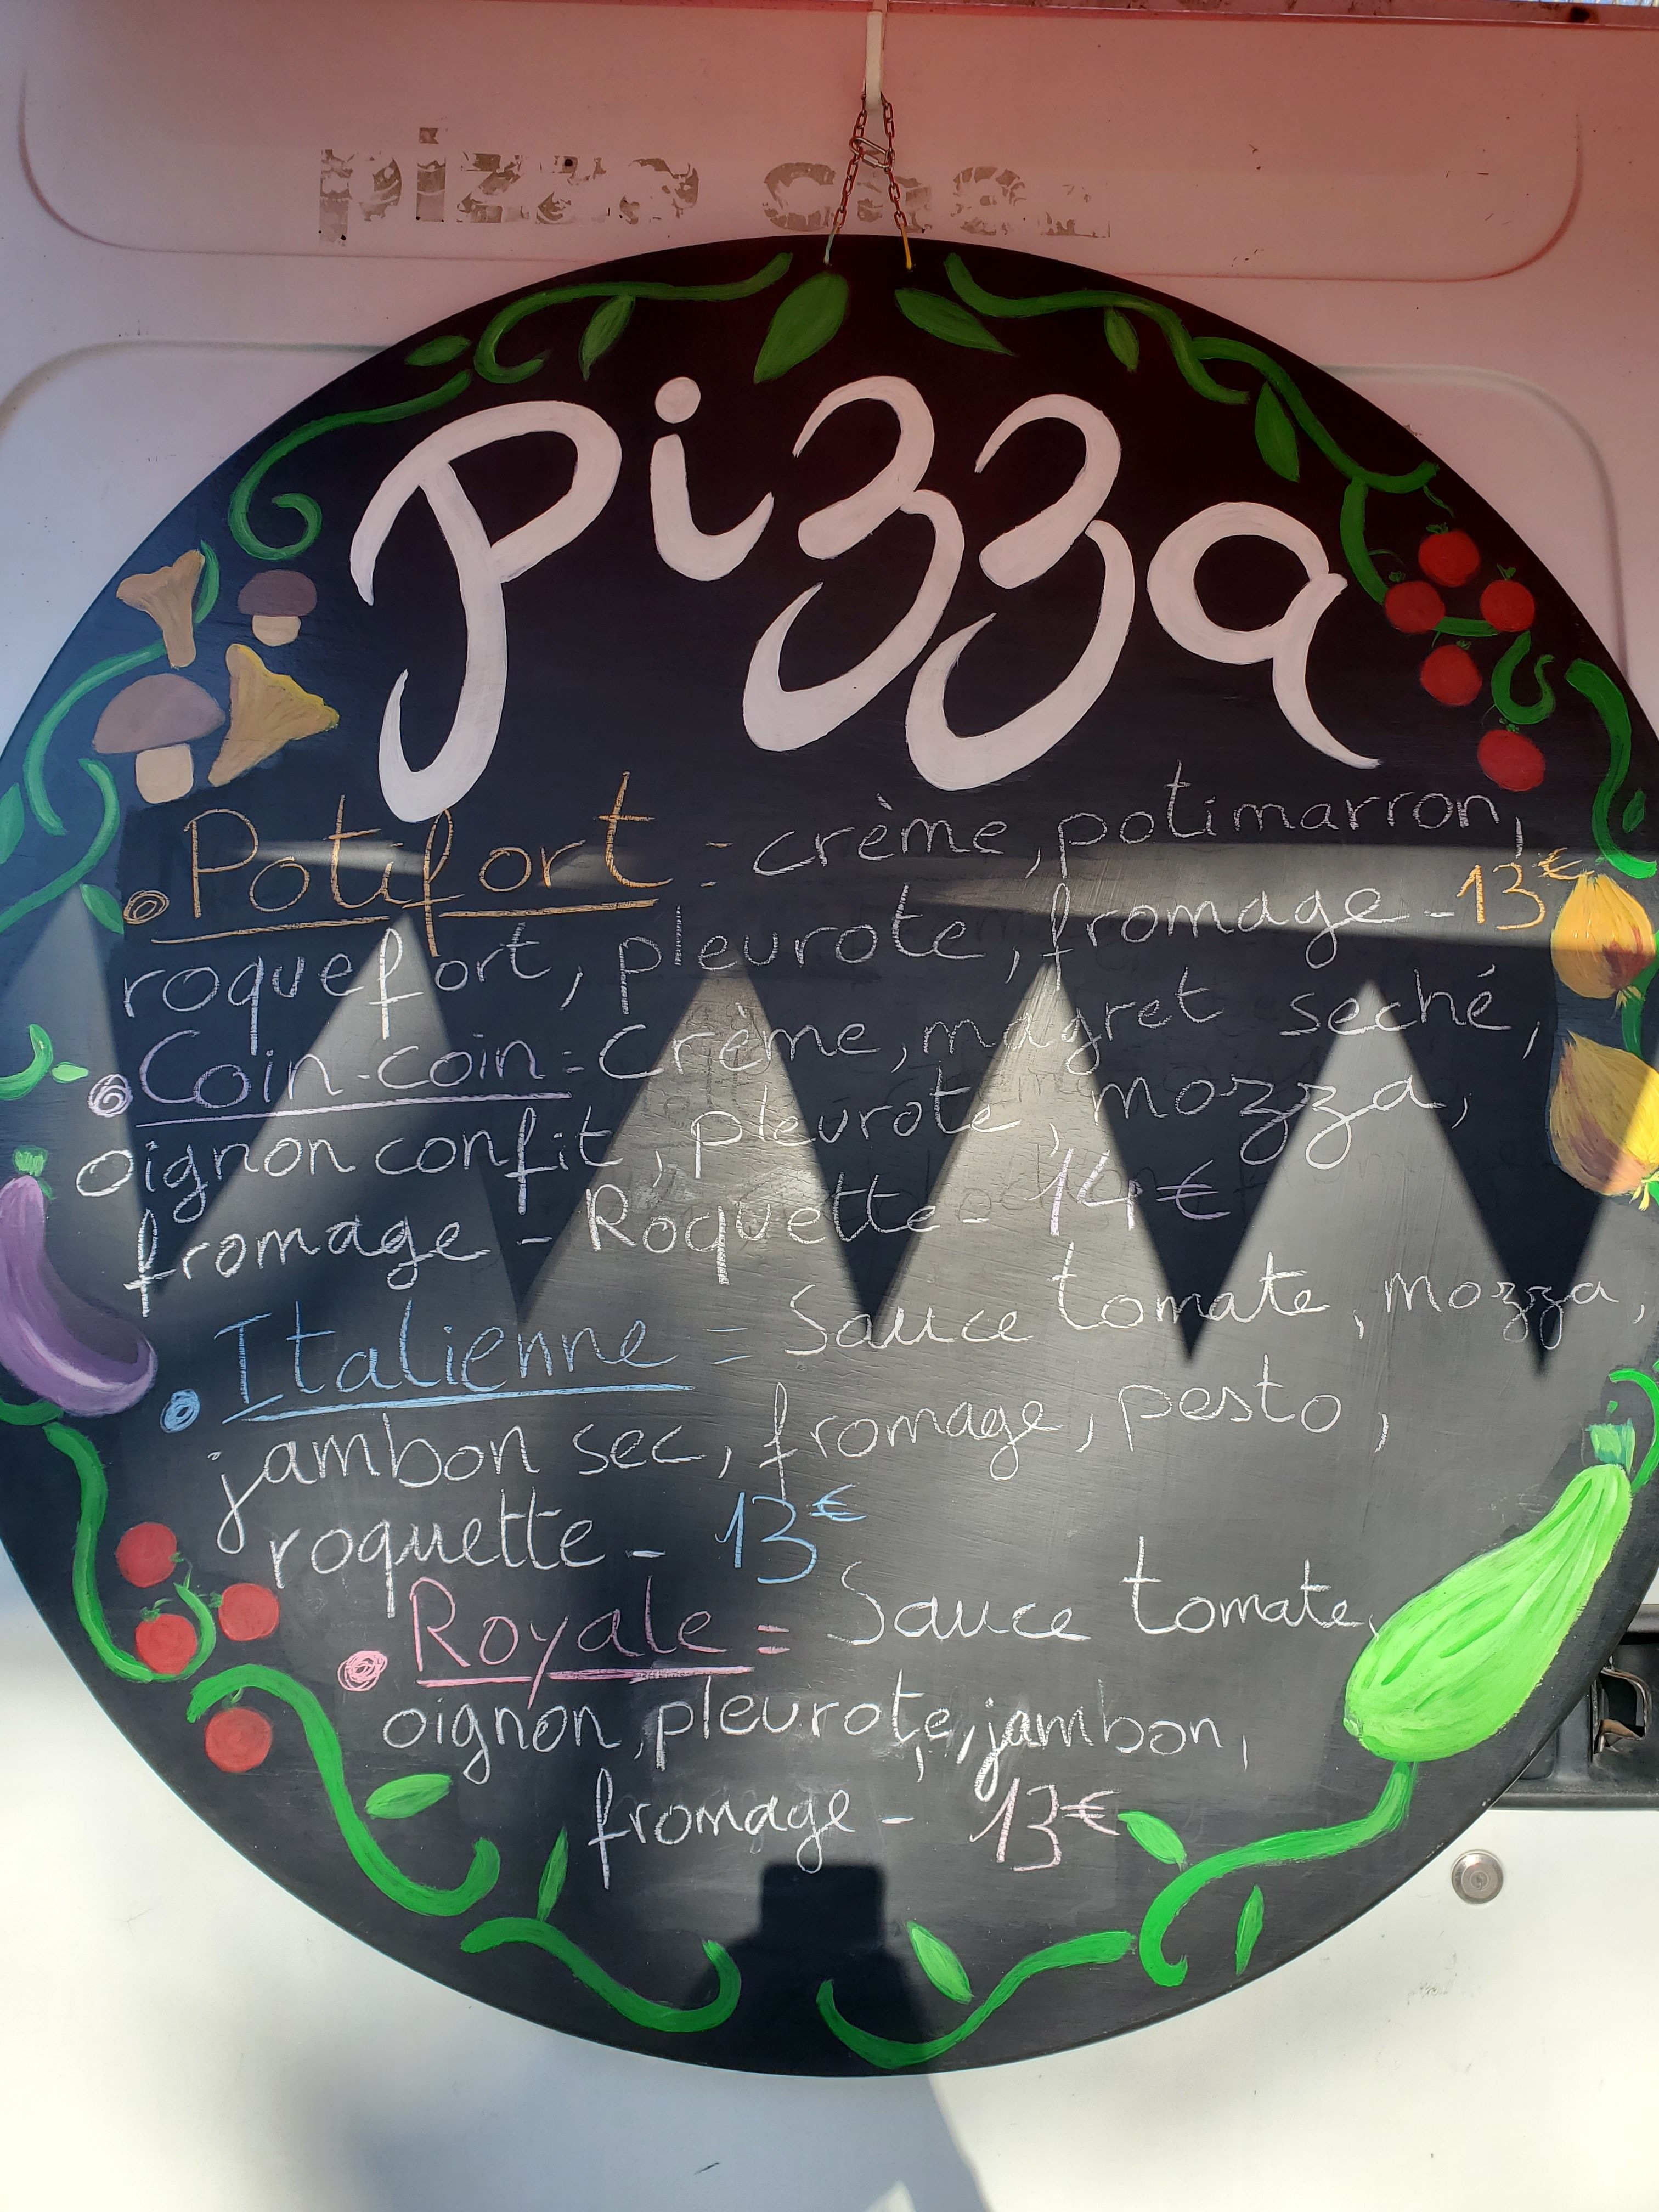 pizza
Pizza
Potifort = crème, potimarron,
roquefort, pleurote, fromage - 13€
Coin-coin = Crème, magret seché,
oignon confit, pleurote, mozza,
fromage - Roquette - 14€
Italienne = Sauce tomate, mozza,
jambon sec, fromage, pesto,
roquette - 13€
Royale = Sauce tomate,
oignon, pleurote, jambon,
fromage - 13€